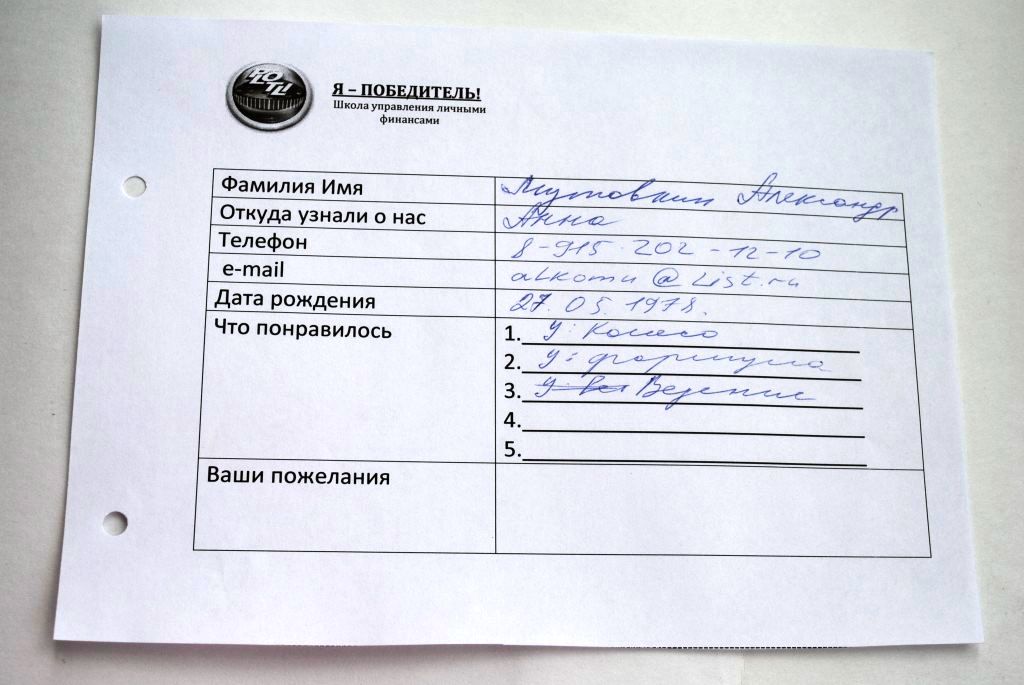 Я – ПОБЕДИТЕЛЬ!
Школа управления личными
финансами
Фамилия Имя Мутовкин Александр
Откуда узнали о нас Анна
Телефон 8-915-202-12-10
e-mail alkomu@list.ru
Дата рождения 27.05.1978.
Что понравилось 1. У: Колесо
2. У: формула
3. Везение
4.
5.
Ваши пожелания